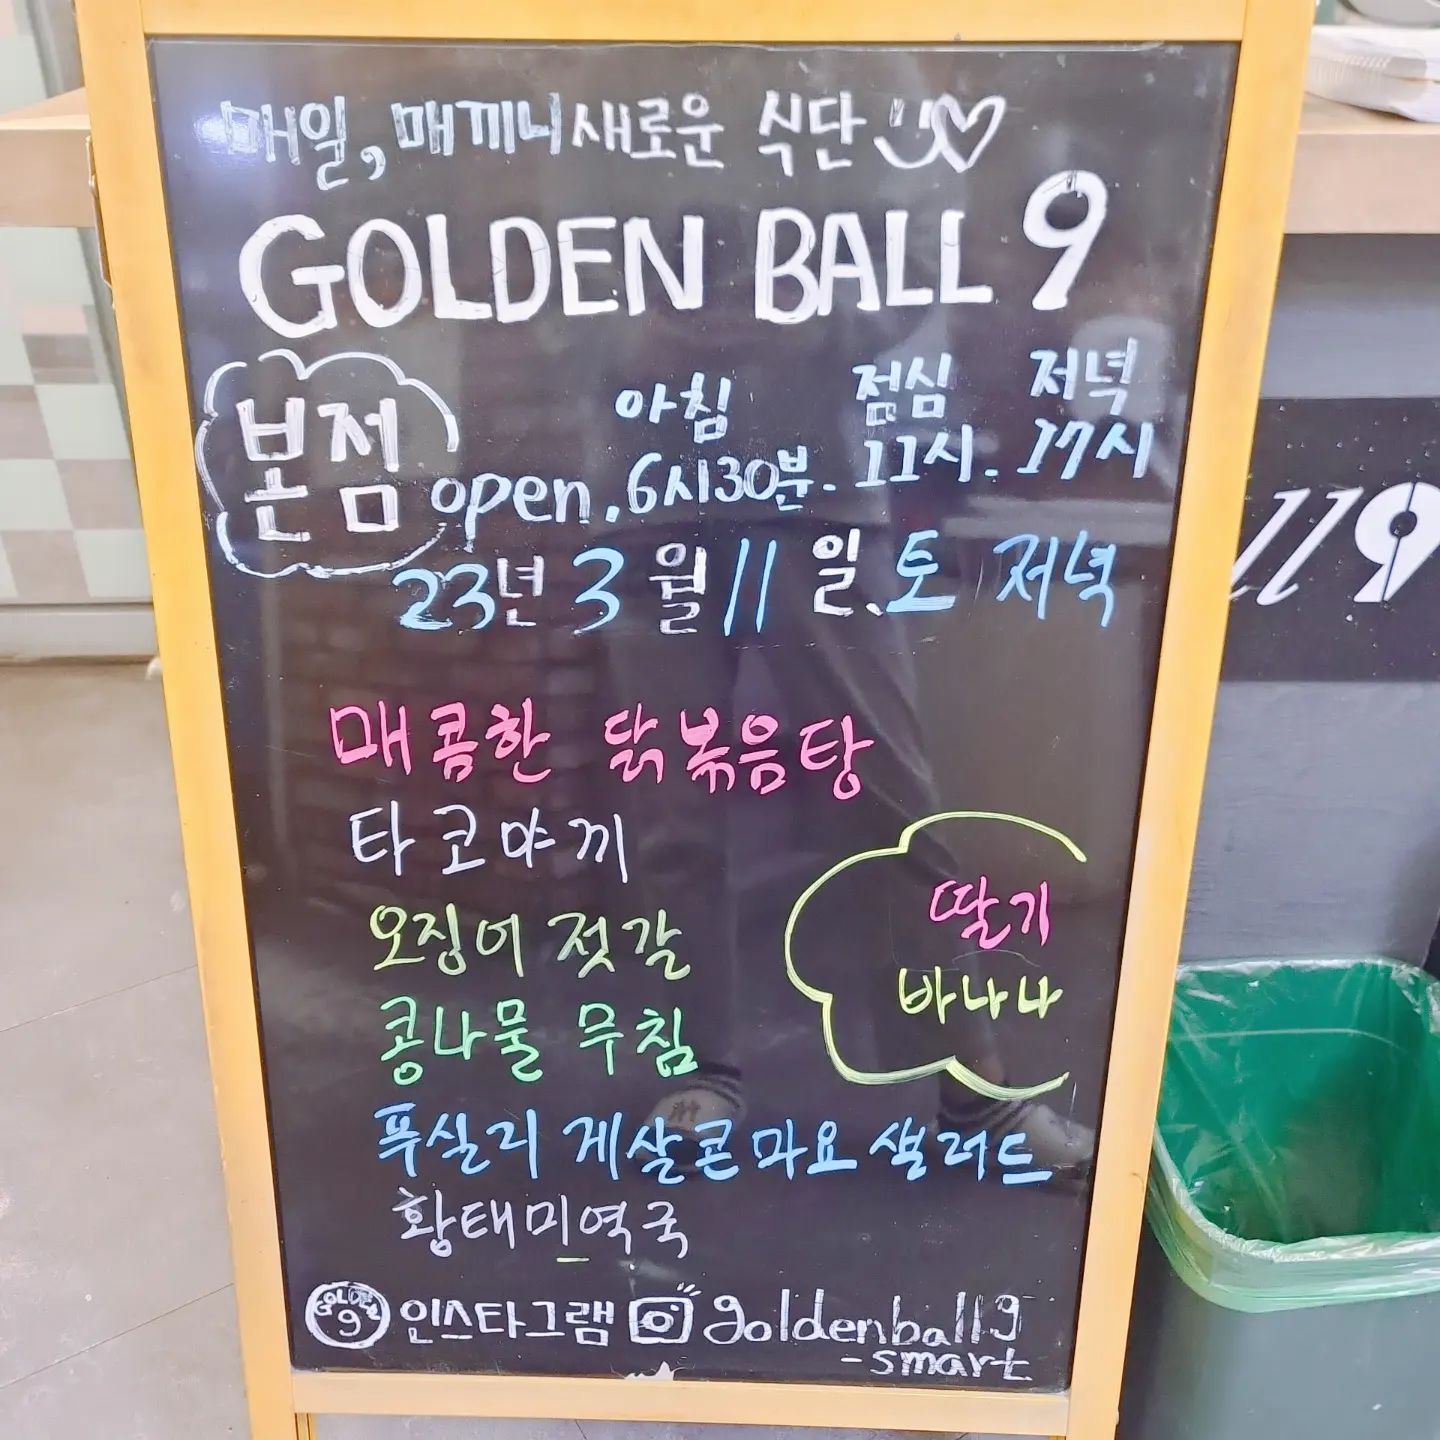 매일, 매끼니 새로운 식단
GOLDEN BALL 9
본점
아침 점심 저녁
open. 6시30분. 11시. 17시
23년 3월 11일. 토 저녁
매콤한 닭볶음탕
타코야끼
오징어 젓갈
콩나물 무침
푸실리 게살콘마요 샐러드
황태미역국
딸기
바나나
GOLDEN
9
인스타그램 goldenball9
-smart
ll9